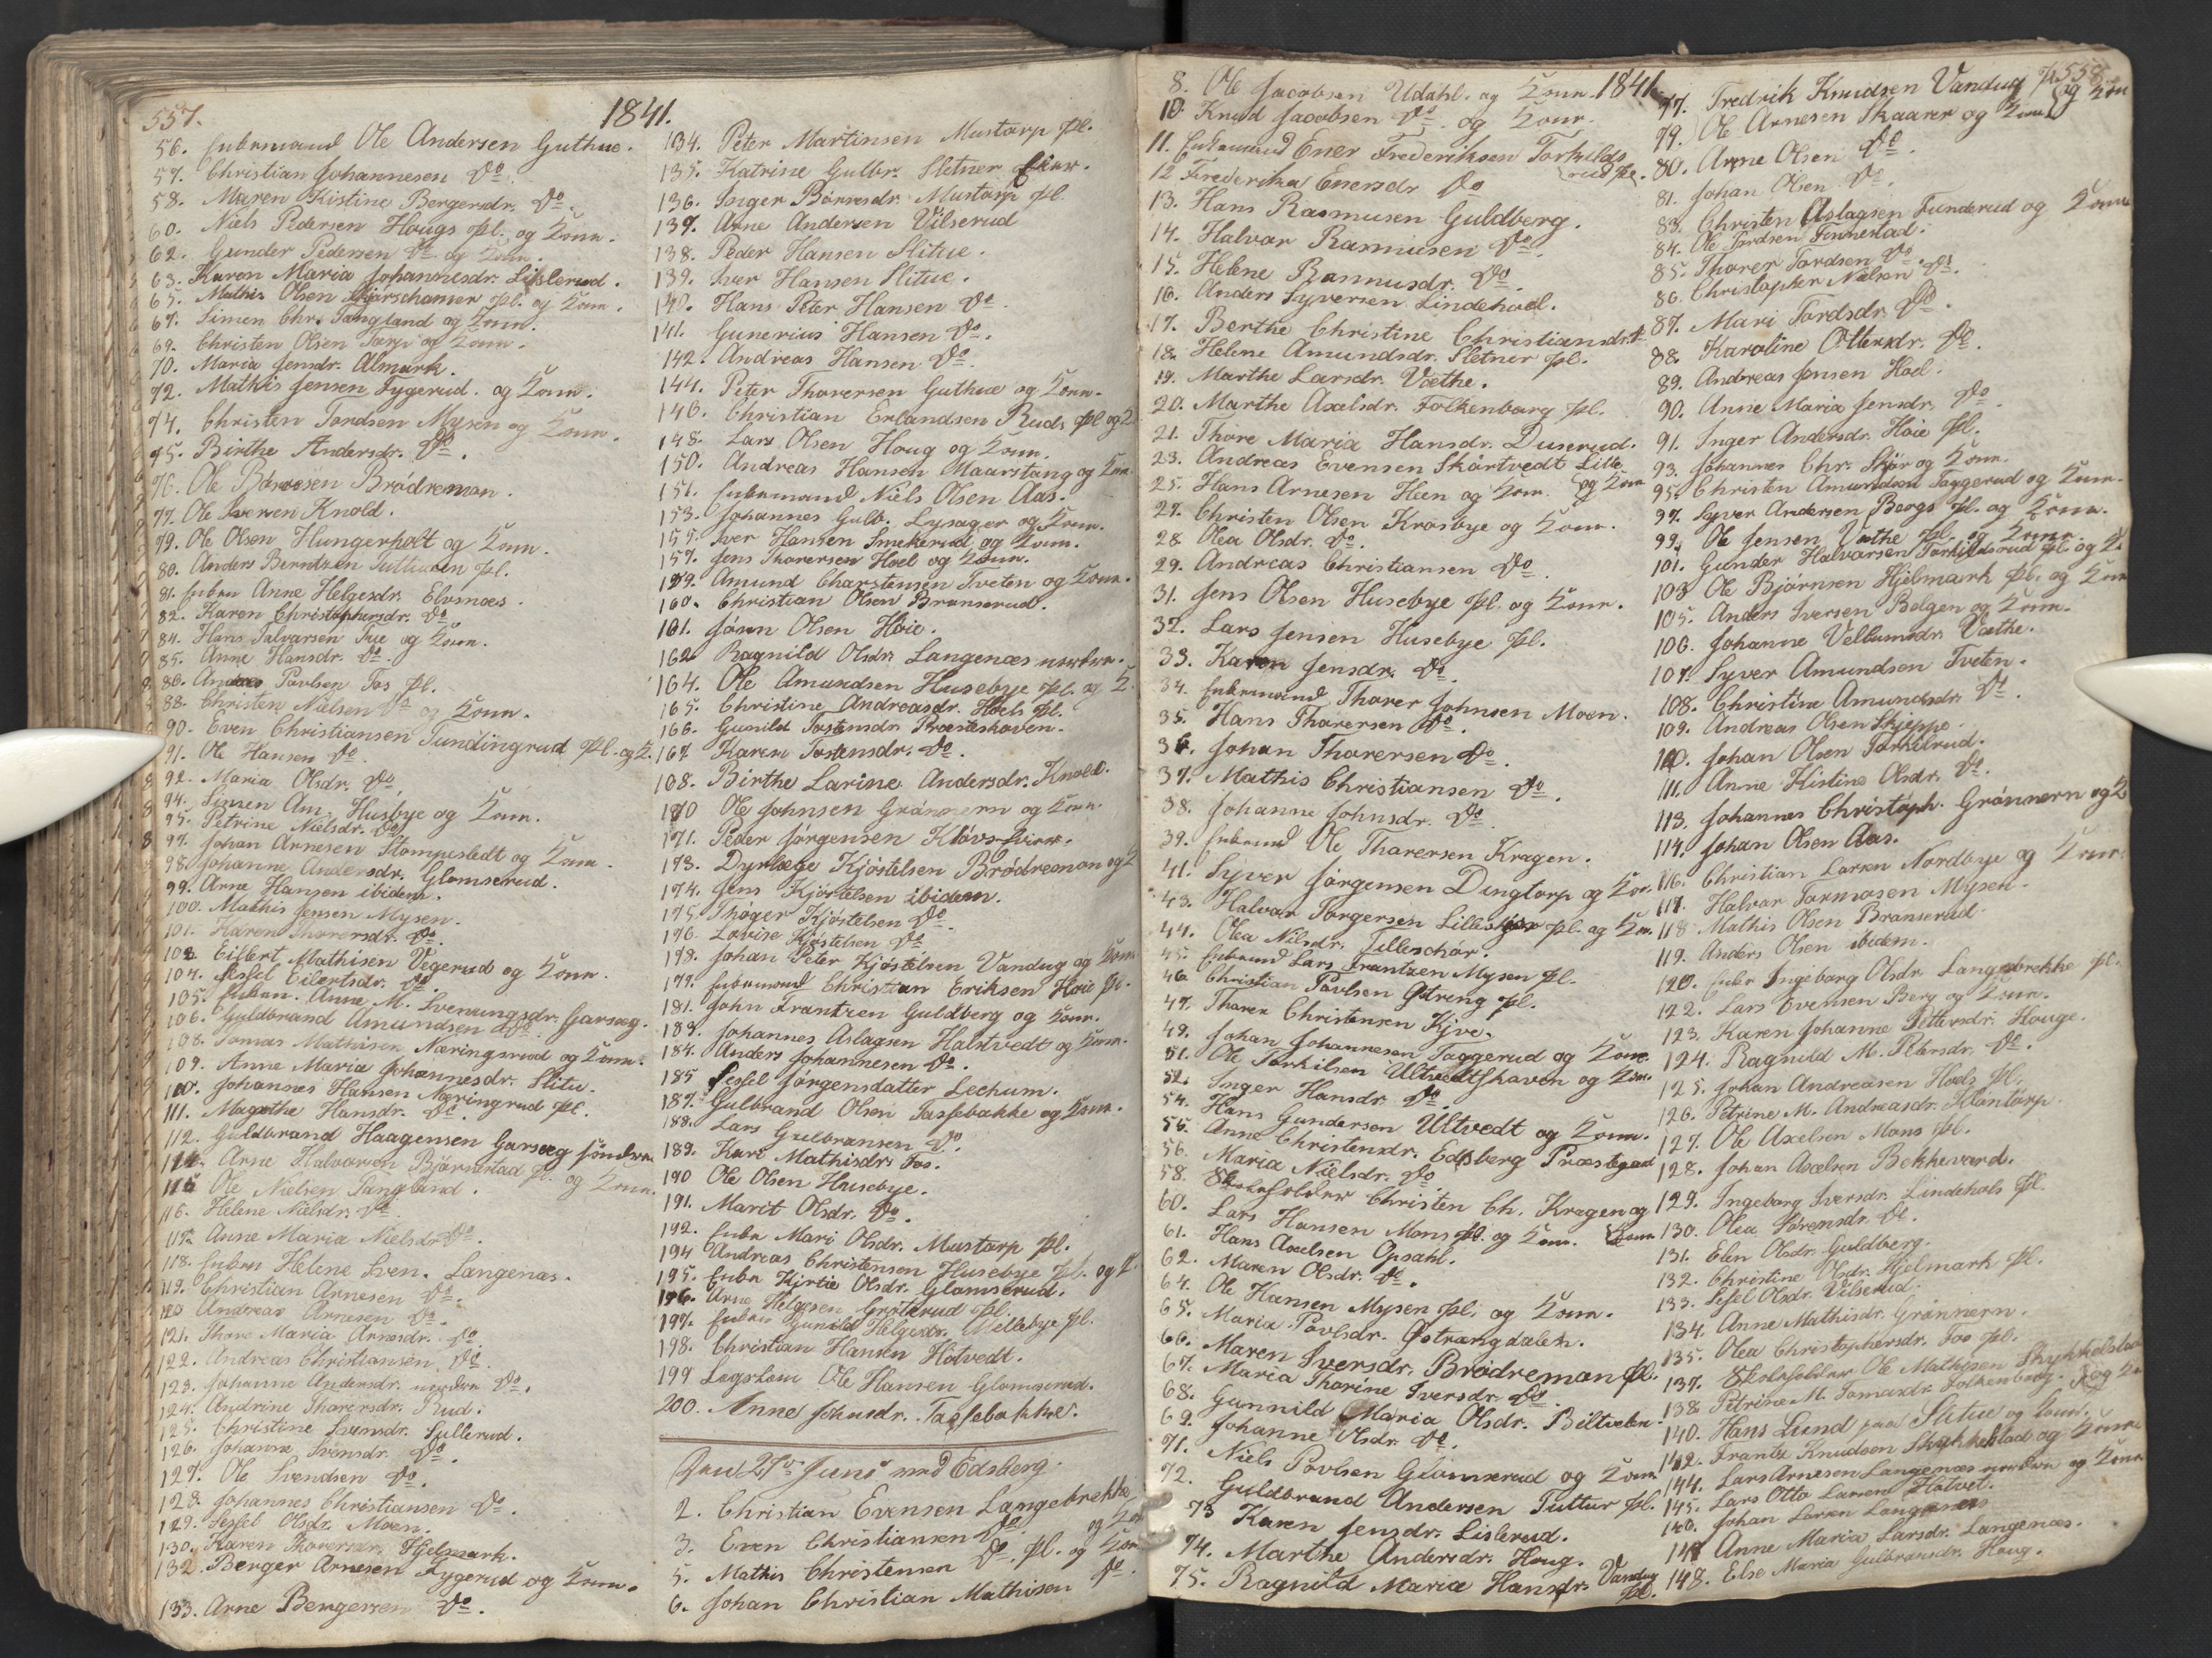 557.
1841.
56. Enkemand Ole Andersen Guthue.
57. Christian Johannesen Do.
58. Maren Kistine Bergersdr. Do.
60. Niels Pedersen Hougs pl. og Kone.
62. Gunder Pedersen Do og Kone.
63. Karen Maria Johannesdr. Lislerud.
65. Mathis Olsen pl. og Kone.
67. Simen Chr. Tangland og Kone.
69. Christen Olsen Torp og Kone.
70. Maria Jensdr. Almark.
72. Mathis Jensen Fygerud. og Kone.
74. Christen Tordsen Mysen og Kone.
75. Birthe Andersdr. Do.
76. Ole Brødreman.
77. Ole Iversen Knold.
79. Ole Olsen Hungerholt og Kone.
80. Anders Berntzen pl.
81. Enken Anne Helgesdr. Elvsnæs.
82. Karen Christophersdr. Do
84. Hans og Kone.
85. Anne Hansdr. Do.
86. Povlsen Fos pl.
88. Christen Nielsen Do og Kone.
90. Even Christiansen Tundingrud pl. og K.
91. Ole Hansen Do.
92. Maria Olsdr. Do
94. Simen Am. Husbye og Kone.
95. Petrine Nielsdr. Do
97. Johan Arnesen Stompestedt og Kone.
98. Johanne Andersdr. Glomserud.
99. Arne Hansen ibidem.
100. Mathis Jensen Mysen.
101. Karen Thorersdr. Do.
103. Eilbert Mathisen Vegerud og Kone.
104. Sessel Eilertsdr. Do.
105. Enken. Anne M. Svenungsdr. Garseg.
106. Guldbrand Amundsen Do.
108. Tomas Mathisen Næringsrud og Kone.
109. Anne Maria Johannesdr. Slitu.
110. Johannes Hansen Næringrud pl.
111. Magrethe Hansdr. Do.
112. Guldbrand Haagensen Garseg søndre.
114. Arne Halvorsen Bjørnstad pl. og Kone.
115 Ole Nielsen Tangland.
116. Helene Nielsdr. Do
117. Anne Maria Nielsdr. Do.
118. Enken Helene Sven. Langenæs.
119. Christian Arnesen Do.
120 Andreas Arnesen Do.
121. Thore Maria Arnesdr. Do
122. Andreas Christiansen Do.
123. Johanne Andersdr. nordre Do.
124. Andrine Thorersdr. Rud.
125. Christine Svensdr. Sullerud.
126. Johanne Svensdr. Do.
127. Ole Svendsen Do.
128. Johannes Christiansen Do.
129. Sessel Olsdr. Moen.
130. Karen Thorersdr. Hjelmark.
132. Berger Arnesen Fygerud og Kone.
133. Arne Bergersen Do.
134. Peter Martinsen Mustorp pl.
135. Katrine Gulbr. Sletner
136. Inger Børresdr. Mustorp pl.
137. Arne Andersen Vilserud
138. Peder Hansen Slitue.
139. Iver Hansen Slitue.
140. Hans Peter Hansen Do
141. Gunerius Hansen Do.
142. Andreas Hansen Do.
144. Peter Thorersen Guthue og Kone.
146. Christian Erlandsen Ruds pl og K
148. Lars Olsen Houg og Kone.
150. Andreas Hansen Maarstang og Kone
151. Enkemand Niels Olsen Aas.
153. Johannes Gulb. Lysager og Kone.
155. Iver Hansen Smekerud og Kone.
157. Jens Thorersen Hoel og Kone.
159. Amund Charstensen Tveten og Kone.
160. Christian Olsen Branserud.
161. Jørn Olsen Høie.
162 Ragnild Olsdr. Langenæs nordre.
164. Ole Amundsen Husebye pl. og K.
165. Christine Andreasdr. Hoels pl.
166. Gunild Tostensdr. Præsteshoven.
167 Karen Tostensdr. Do.
168. Birthe Larine Andersdr. Knold.
170 Ole Johnsen Grønnern og Kone.
171. Peder Jørgensen
173. Dyrlæge Kjøstelsen Brødremon og K
174. Jens Kjøstelsen ibidem.
175. Thøger Kjøstelsen Do.
176. Lovise Kjøstelsen Do
178. Johan Peter Kjøstelsen Vandug og Kone
179. Enkemand Christian Eriksen Høie pl.
181. John Frantzen Guldberg og Kone.
183. Johannes Aslagsen Halstvedt og Kone.
184. Anders Johannesen Do.
185 Sessel Jørgensdatter Lechum.
187. Gulbrand Olsen Tassebakke og Kone.
188. Lars Gulbransen Do
189. Kari Mathisdr. Fos.
190 Ole Olsen Husebye.
191. Marit Olsdr. Do.
192. Enke Mari Olsdr. Mustorp pl.
194 Andreas Christensen Husebye pl. og K
195. Enke Kjrtie Olsdr. Glomserud.
196. Arne Helgesen pl.
197. Enken Gunild Helgesdr. Vellebye pl.
198. Christian Hansen Hotvedt.
199 Logskou Ole Hansen Glomserud.
200. Anne Johnsdr. Tassebakke.
Den 27de Juni ved Edsberg.
2. Christian Evensen Langebrekke
og Kone
3. Even Christiansen Do.
5. Mathis Christensen Do. pl. og Kone
6. Johan Christian Mathisen Do.
1841.
558
8. Ole Jacobsen Udahl. og Kone.
10. Knud Jacobsen Do. og Kone.
11. Enkemand Ener Frederiksen Torkilds
rud pl.
12 Frederika Enersdr. Do
13. Hans Rasmusen Guldberg.
14. Halvor Rasmusen Do.
15. Helene Rasmusdr. Do.
16. Anders Syversen Lindehoel.
17. Berthe Christine Christiansdr.
18. Helene Amundsdr. Sletner pl.
19. Marthe Larsdr. Væthe.
20. Marthe Axelsdr. Folkenborg pl.
21. Thore Maria Hansdr. Duserud.
23. Andreas Evensen Skårtvedt Lille
og Kone
25. Hans Arnesen Heen og Kone.
27. Christen Olsen Krosbye og Kone.
28 Olea Olsdr. Do.
29. Andreas Christiansen Do
31. Jens Olsen Husebye pl. og Kone.
32. Lars Jensen Husebye pl.
33. Karen Jensdr. Do.
34. Enkemand Thorer Johnsen Moen.
35. Hans Thorersen Do.
36. Johan Thorersen Do.
37. Mathis Christiansen Do.
38. Johanne Johnsdr. Do.
39. Enkemd Ole Thorersen Kragen.
41. Syver Jørgensen Dingtorp og Kone.
43. Halvor Torgersen pl. og Kone.
44. Olea Nilsdr.
45. Enkemd Lars Frantzen Mysen pl.
46 Christian Povlsen Østreng pl.
47. Thoren Christensen Kjve.
49. Johan Johannesen Taggerud og Kone
51. Ole Torkilsen Ultvedtshaven og Kone.
52. Inger Hansdr. Do.
54. Hans Gundersen Ultvedt og Kone.
55. Anne Christensdr. Edsberg Præstegad
56. Maria Nielsdr. Do.
58. Skoleholder Christen Ch. Kragen og
Kone
60. Lars Hansen Mons pl. og Kone.
61. Hans Axelsen Opsahl.
62. Maren Olsdr. Do.
64. Ole Hansen Mysen pl. og Kone.
65. Maria Povlsdr. Østrængdalen.
66. Maren Iversdr. Brødreman pl.
67. Maria Thorine Iversdr. Do.
68. Gunnild Maria Olsdr. Biltvelen.
69. Johanne Olsdr. Do.
71. Niels Povlsen Glomserud og Kone
72. Guldbrand Andersen Tuttur pl.
73 Karen Jensdr. Lislerud.
74. Marthe Andersdr. Houg.
75. Ragnild Maria Hansdr. Vandug
pl.
77. Fredrik Knudsen Vandug pl.
og Kone
79. Ole Arnesen Skaarer og Kone
80. Arne Olsen Do.
81. Johan Olsen Do.
83. Christen Aslagsen Funderud og Kone
84. Ole Tordsen Finnestad.
85. Thorer Tordsen Do
86. Christopher Nielsen Do.
87. Mari Tordsdr. Do.
88. Karoline Ottersdr. Do.
89. Andreas Jensen Hoel.
90. Anne Maria Jensdr. Do
91. Inger Andersdr. Høie pl.
93. Johannes Chr. Skjør og Kone.
95. Christen Amundsen Taggerud og Kone.
97. Syver Andersen Bergs pl. og Kone.
99. Ole Jensen Væthe pl. og Kone.
101. Gunder Halvorsen Torkildsrud pl. og K.
103 Ole Bjørnsen Hjelmark pl. og Kone
105. Anders Iversen Bølgen og Kone.
106. Johanne Vellumsdr. Væthe.
107. Syver Amundsen Tveten.
108. Christine Amundsdr. Do.
109. Andreas Olsen Skjeppe.
110. Johan Olsen Torkilrud.
111. Anne Kistine Olsdr. Do.
113. Johannes Christoph. Grønnern og K
114. Johan Olsen Aas.
116. Christian Larsen Nordbye og Kone
117. Halvor Tormosen Mysen.
118 Mathis Olsen Branserud.
119. Anders Olsen ibidem.
120. Enke Ingeborg Olsdr. Langebrekke pl.
122. Lars Evensen Berg og Kone.
123. Karen Johanne Pettersdr. Houge.
124. Ragnild M. Petersdr. Do.
125. Johan Andreasen Hoels pl.
126. Petrine M. Andreasdr. Klontorp.
127. Ole Axelsen Mons pl.
128. Johan Axelsen Bekkevard.
129. Ingeborg Iversdr. Lindehols pl.
130. Olea Sørensdr. Do.
131. Elen Olsdr. Guldberg.
132. Christine Olsdr. Hjelmark pl.
133. Sesel Olsdr. Vilserud.
134. Anne Mathisdr. Grønnern.
135. Olea Christophersdr. Fos pl.
137. Skoleholder Ole Mathisen
og Ko
138. Petrine M. Tomasdr. Folkenborg.
140. Hans Lund paa Slitue og Kone.
142. Frantz Knudsen og Kone
144. Lars Arnesen Langenæs nordre og Kone
145. Lars Otto Larsen Hotvet.
146. Johan Larsen Langenæs
147 Anne Maria Larsdr. Langenæs.
148. Else Maria Gulbransdr. Houg.